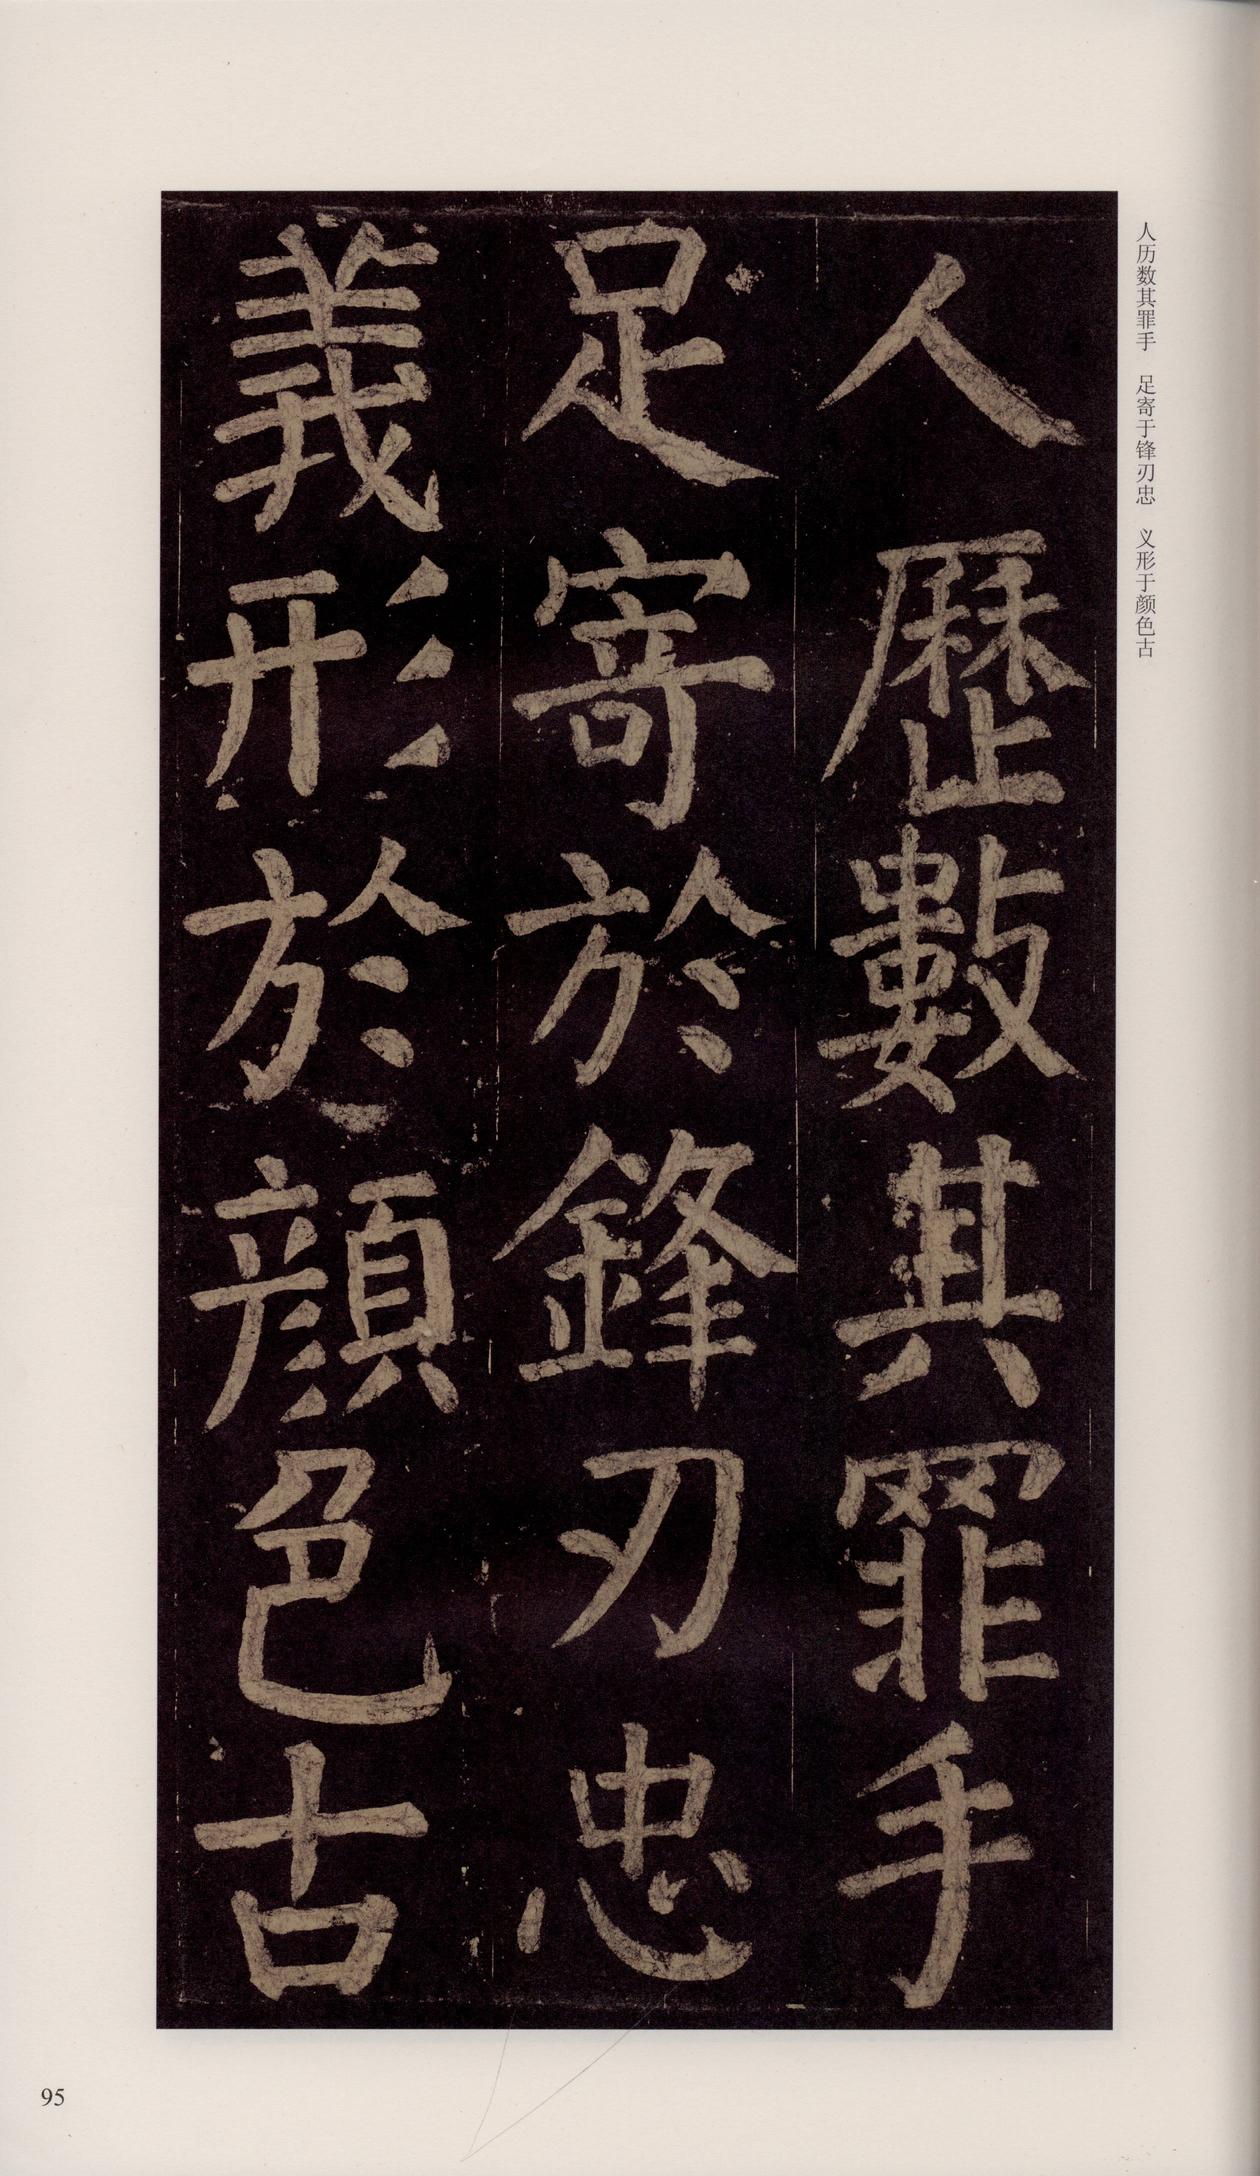 人歷數其罪手
足寄於鋒刃忠
義形於顏色古
人历数其罪手　足寄于锋刃忠　义形于颜色古
95